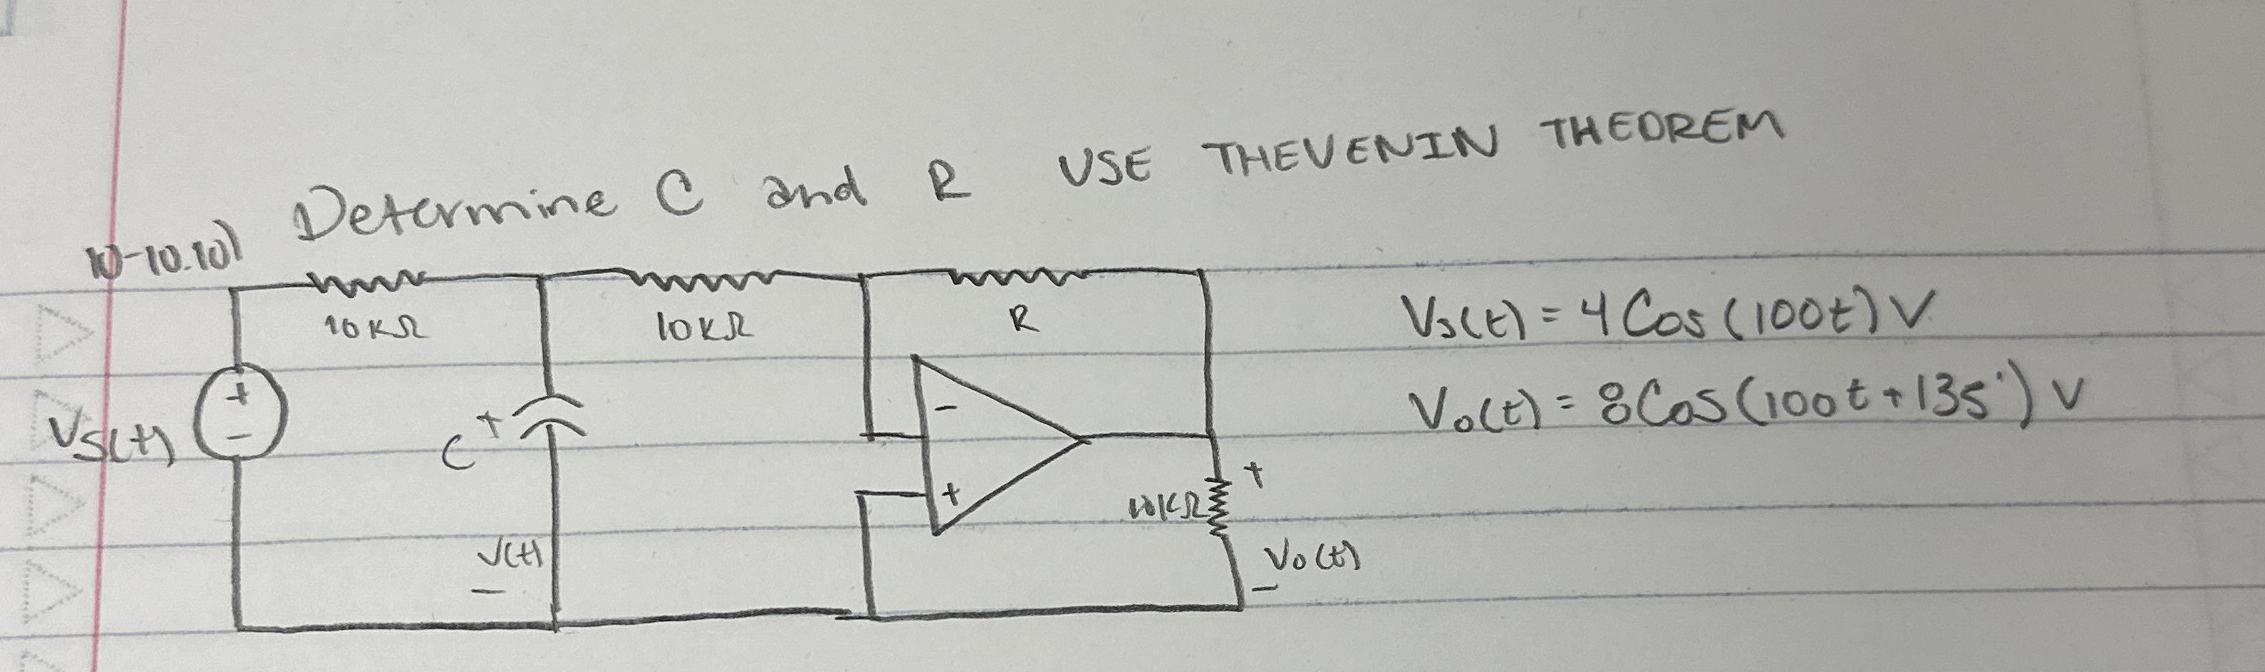 Determine C and R USE THEVENIN THEOREM
10-10.10)
10KΩ
10KΩ
R
Vs(t) = 4 Cos (100t) V
Vo(t) = 8 Cos (100t + 135°) V
+
-
Vs(t)
C
+
-
+
+
10KΩ
V(t)
-
Vo(t)
-